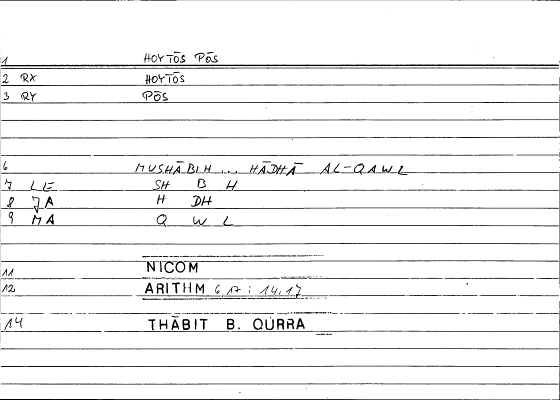 1 HOYTŌS PŌS
2 RX HOYTŌS
3 RY PŌS
6 MUSHĀBIH ... HĀDHĀ AL-QAWL
7 LE SH B H
8 JA H DH
9 MA Q W L
11 NICOM
12 ARITHM 6,17 : 14,17
14 THĀBIT B. QURRA